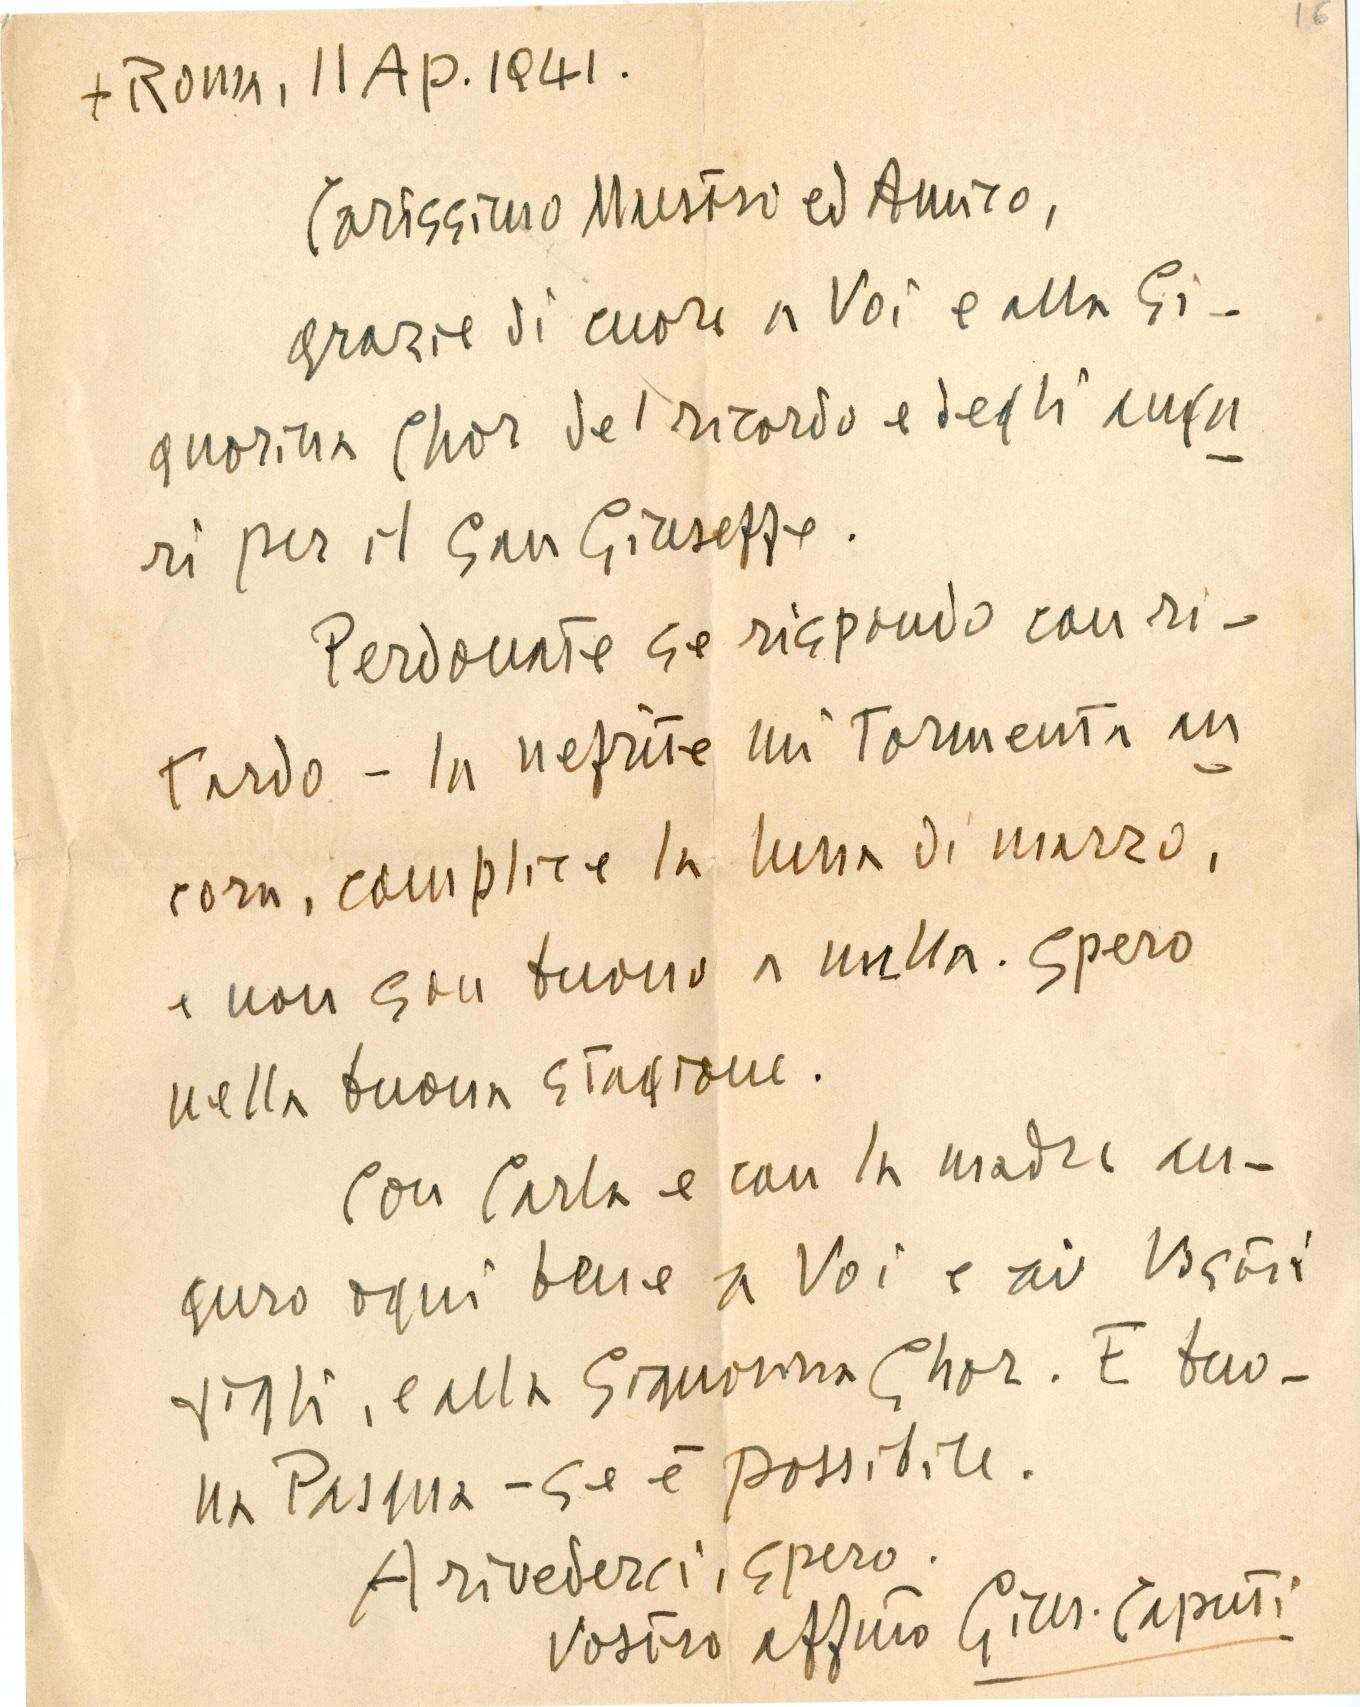 16
+ Roma, 11 Ap. 1941.
Carissimo Maestro ed Amico,
grazie di cuore a Voi e alla Si-
gnorina Chor del ricordo e degli augu
ri per il San Giuseppe.
Perdonate se rispondo con ri-
tardo - la nefrite mi tormenta an
cora, complice la luna di marzo,
e non son buono a nulla. Spero
nella buona stagione.
Con Carla e con la madre au-
guro ogni bene a Voi e ai Vostri
figli, e alla Signorina Chor. E buo-
na Pasqua - se è possibile.
A rivederci, spero.
Vostro affmo Gius. Caputi